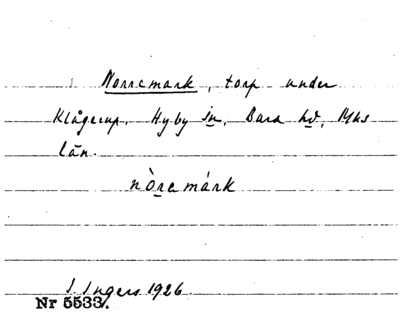 Norremark, torp under
Klågerup, Hyby sn, Bara hd, Mhs
län.
nòremárk
I. Ingers 1926.
Nr 5533.